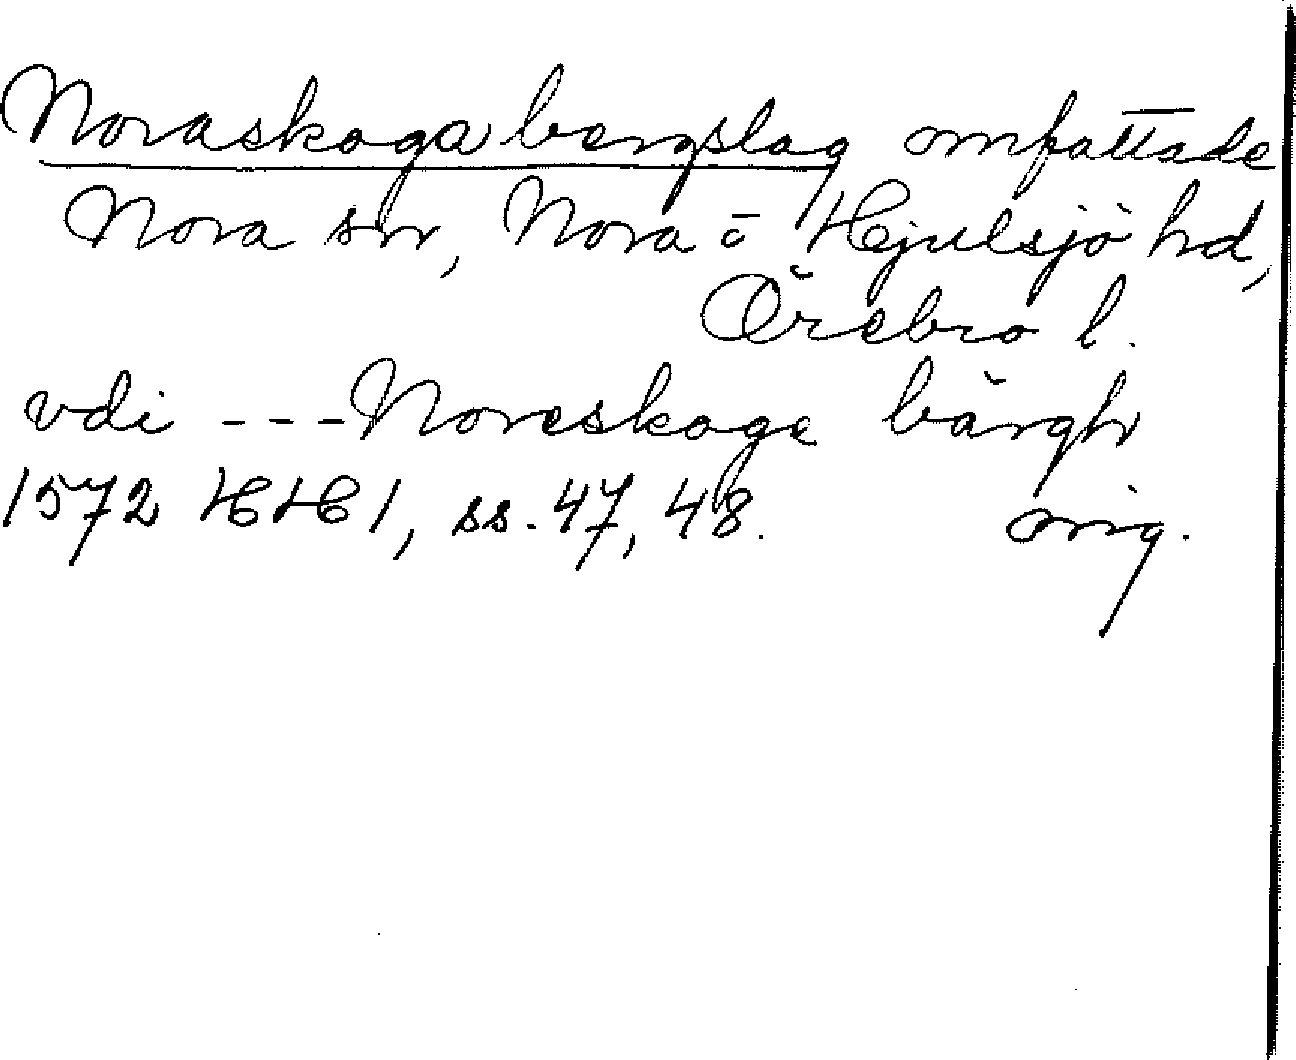 Noraskoga bergslag omfattade
Nora sn, Nora o Hjulsjö hd,
Örebro l.
vdi --- Noreskoge bärgh
1572 HH 1, ss. 47, 48. orig.